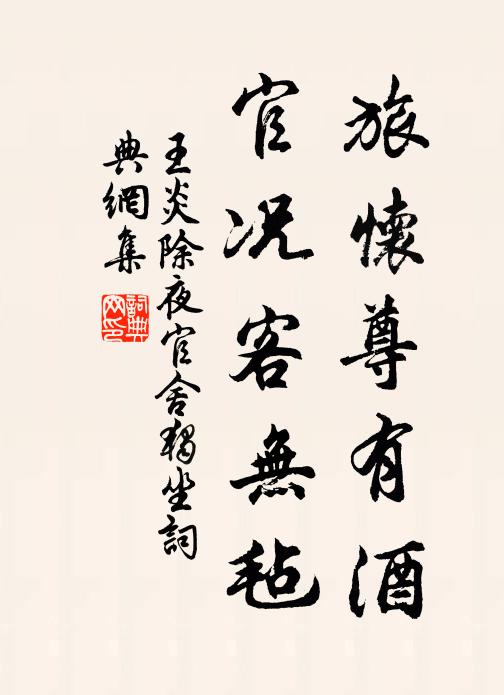 旅懷尊有酒
官况客無毡
王炎除夜官舍獨坐詞
典網集
詞典網印